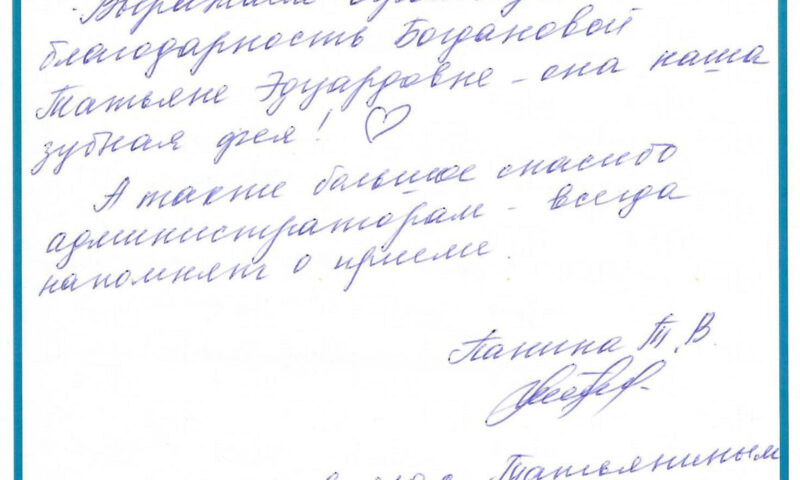 - Выражаем
благодарность Богдановой
Татьяне Эдуардовне - она наша
зубная фея! ♡
А также большое спасибо
администраторам - всегда
напомнят о приеме.
Панина Т.В.
Татьяниным